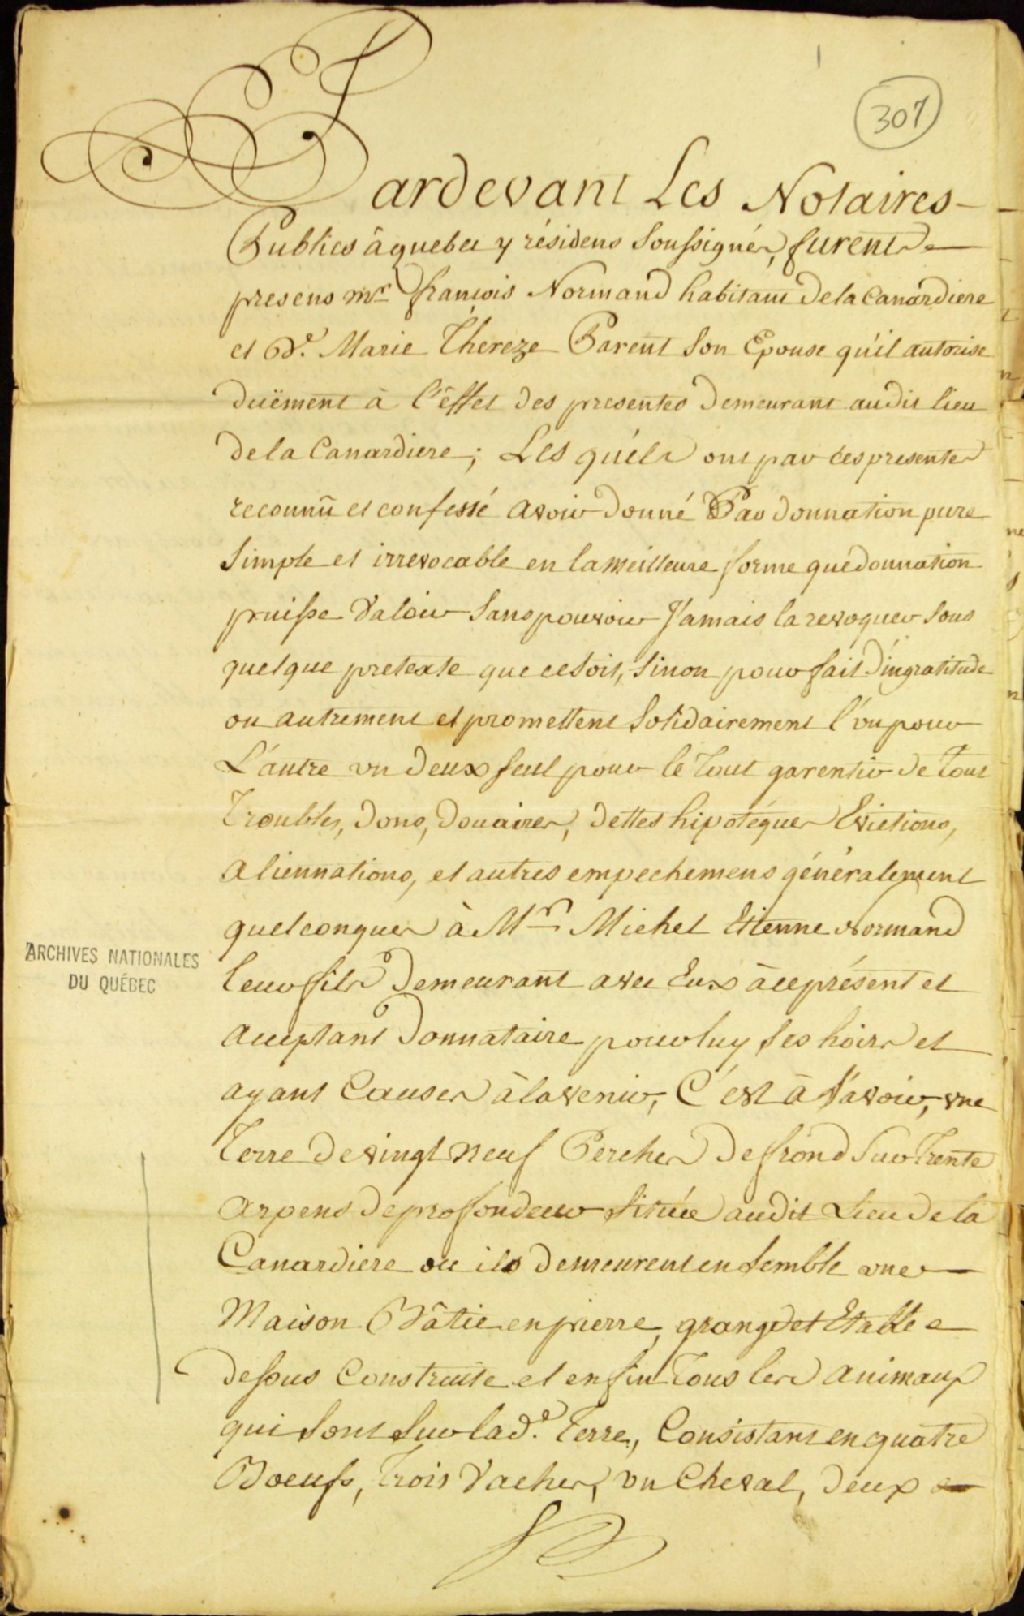 307
Pardevant Les Notaires
Publics à quebec y résidens Soussignés, furent
presens mr. françois Normand habitant de la Canardiere
et De. Marie Thereze Parent Son Epouse qu'il autorise
deüement à l'éffet des presentes demeurant audit lieu
de la Canardiere; Les quéls ont par ces presentes
reconnû et confessé avoir donné Par donnation pure
Simple et irrevocable en la meilleure forme que donnation
puisse Valoir Sans pouvoir Jamais la revoquer sous
quelque pretexte que ce soit, Sinon pour fait d'ingratitude
ou autrement et promettent Solidairement l'un pour
L'autre un deux seul pour le tout garentir de tout
Troubles, dons, douaires, dettes hipotéques Evictions,
aliennations, et autres empechemens généralement
quelconques à Mr. Michel Etienne Normand
leur fils demeurant avec Eux à ce présent et
acceptant donnataire pour luy ses hoirs et
ayans Causes à l'avenir, C'est à Savoir, une
Terre de vingt neuf Perches de frond Sur Trente
arpens de profondeur située audit Lieu de la
Canardiere ou ils demeurent ensemble une
Maison Bâtie en pierre, grange et Etable
dessus Construite et enfin tous les animaux
qui sont sur lad.e Terre, Consistans en quatre
Boeufs, Trois Vaches, un Cheval, deux
ARCHIVES NATIONALES
DU QUÉBEC